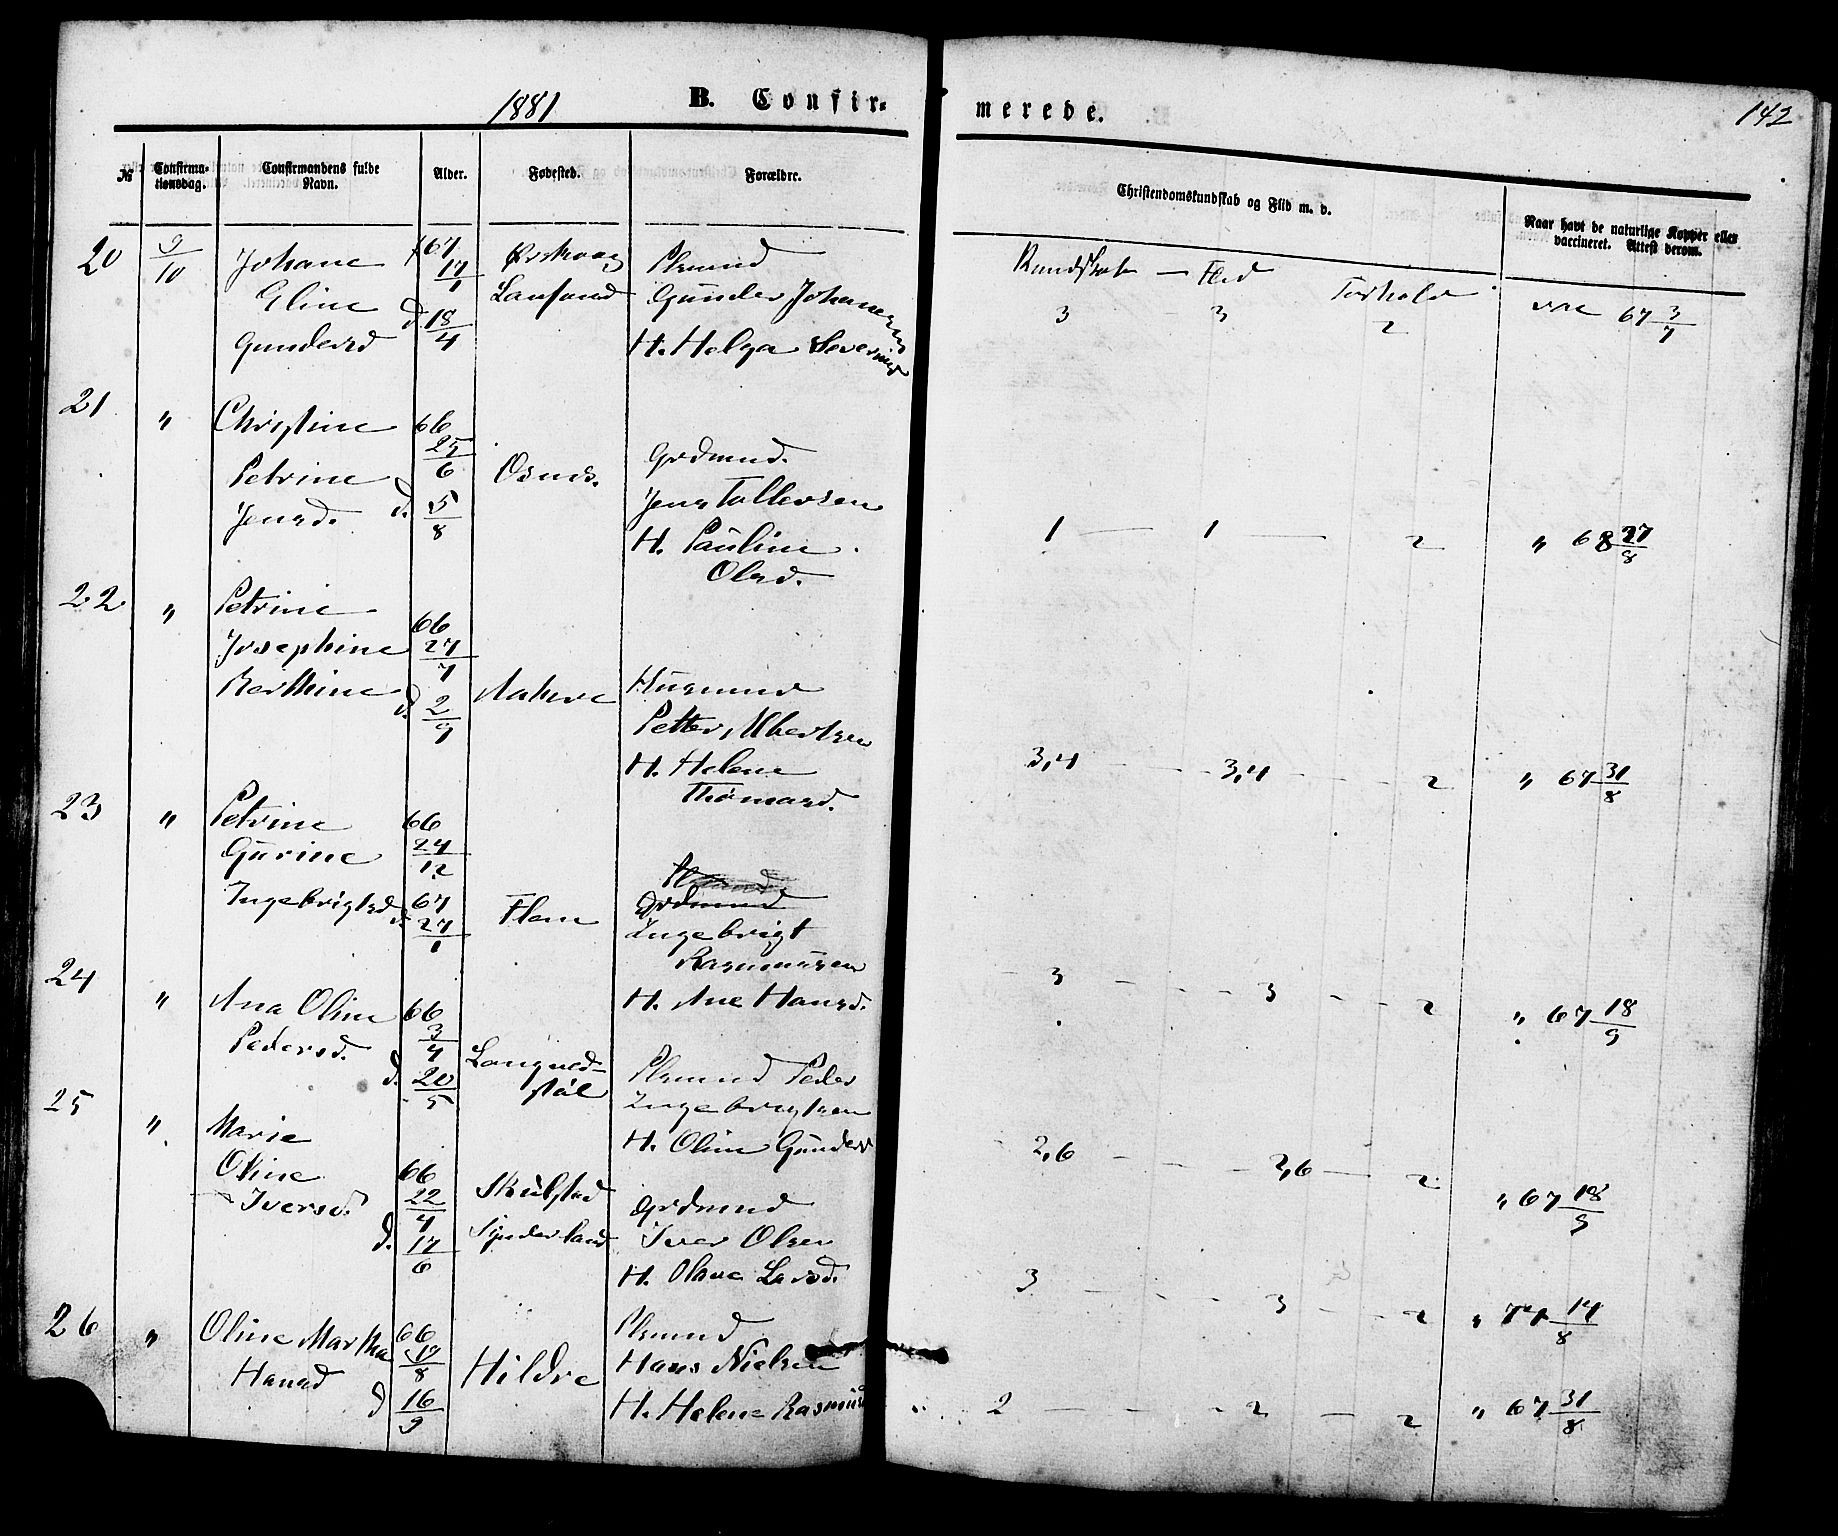 1881
B. Confir-
merede.
142
№
Confirma-
tionsdag.
Confirmandens fulde
Navn.
Alder.
Fødested.
Forældre.
Christendomskundskab og Flid m. v.
Naar havt de naturlige Kopper eller
vaccineret. Attest derom.
20 9/10 Johane
Eline
Gundersd
f 67
17/1
d. 18/4
Ørskoug
Gunder Johanesen
H. Helga Severind
Kundskab — Flid
Forhold
3 3 2
vac 67 3/7
21 " Christine
Petrine
Jensd.
66
25/6
d. 5/8
Osnes.
Grdmnd.
Jens Tollevsen
H. Pauline
Olsd.
1 — 1 — 2 " 68 27/8
22 " Petrine
Josephine
Berthine
66
27/7
d. 2/9
Husmnd
Petter Albertsen
H. Helene
Thomasd.
3,4 - - 3,4 - - - 2 " 67 31/8
23 " Petrine
Gurine
Ingebrigtsd
66
24/12
67
d. 27/1
Flem
Grdmnd
Ingebrigt
Rasmussen
H. Ane Hansd.
3 - - - 3 - - 2 " 67 18/9
24 " Ana Oline
Pedersd.
66
3/4
d. 20/5
Plsmnd Peder
Ingebrigtsen
H. Oline Gundersd
2,6 - - - 2,6 — 2 " 67 18/9
25 " Marie
Oline
Iversd.
66
22/4
d. 17/6
Skulstad
Synderland
Grdmnd
Iver Olsen
H. Olave Larsd.
3 - - - 3 - - 2 " 74 14/8
26 " Oline Martha
Hansd
66
d 16/9
Hildre
Plsmnd
Hans Nielsen
H. Helene Rasmusd
2 — - - 2 — 2 " 67 31/8